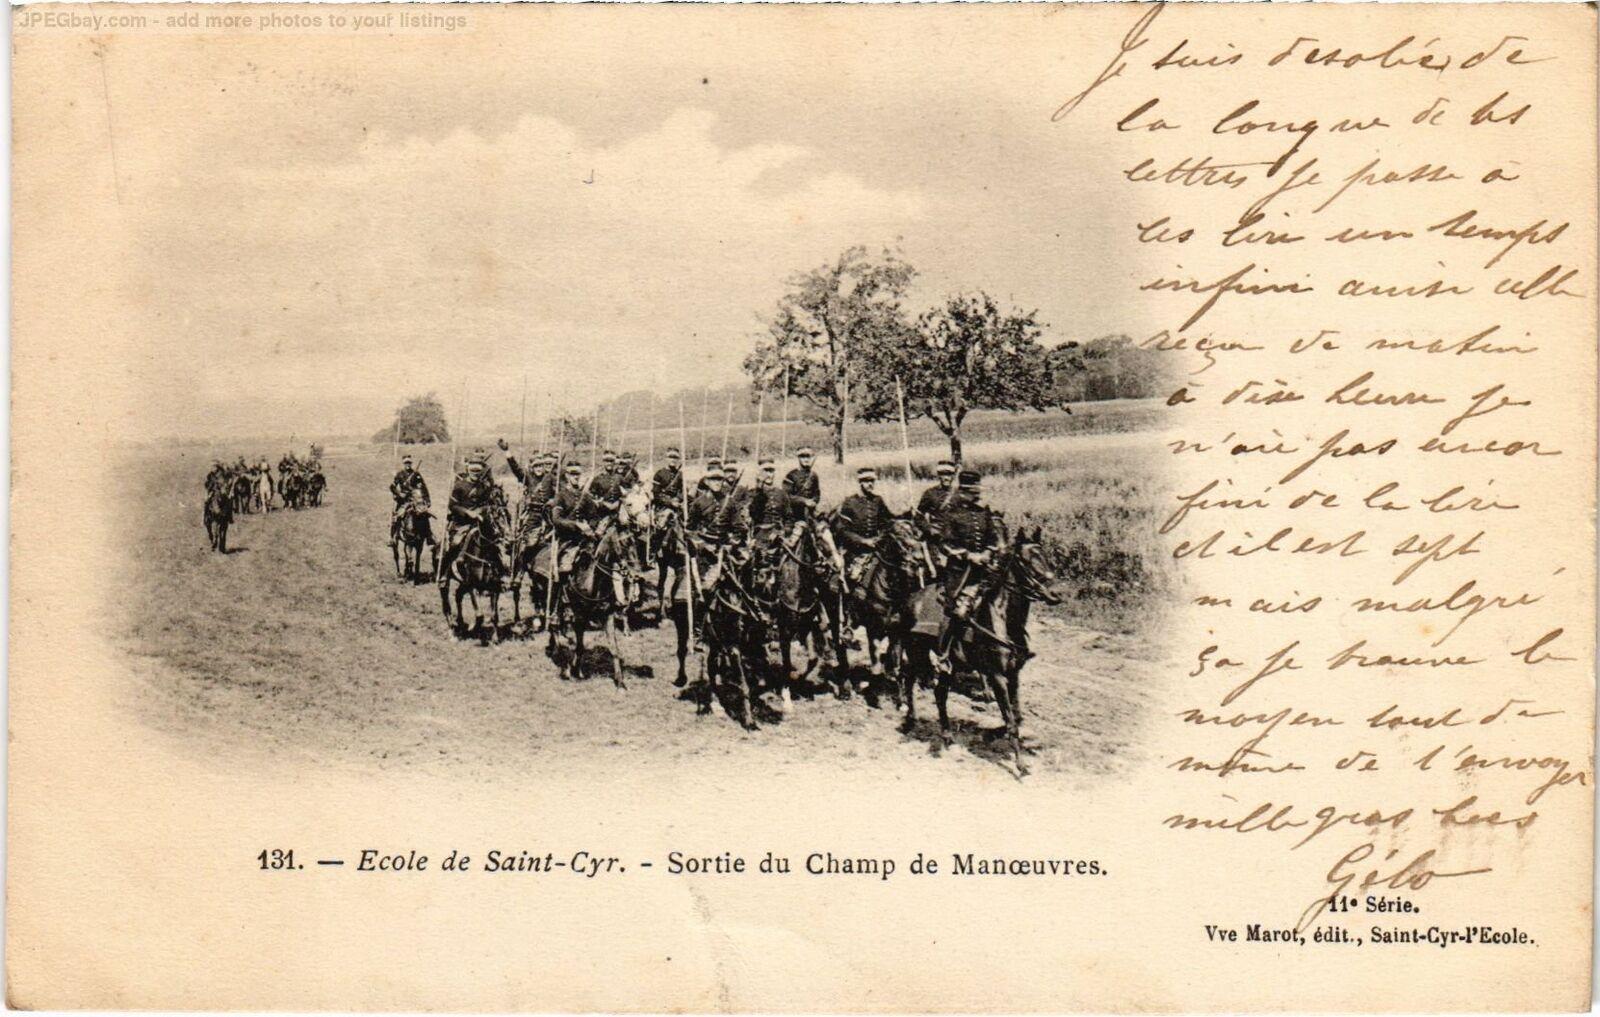 JPEGbay.com - add more photos to your listings
Je suis desolée de
la longue de tes
lettres je passe à
les lire un temps
infini ainsi celle
reçu de matin
à dix heure je
n'ai pas encor
fini de la lire
et il est sept
mais malgré
ça je trouve le
moyen tout de
même de t'envoyer
mille gros becs
131. — Ecole de Saint-Cyr. - Sortie du Champ de Manœuvres.
11e Série.
Vve Marot, édit., Saint-Cyr-l'Ecole.